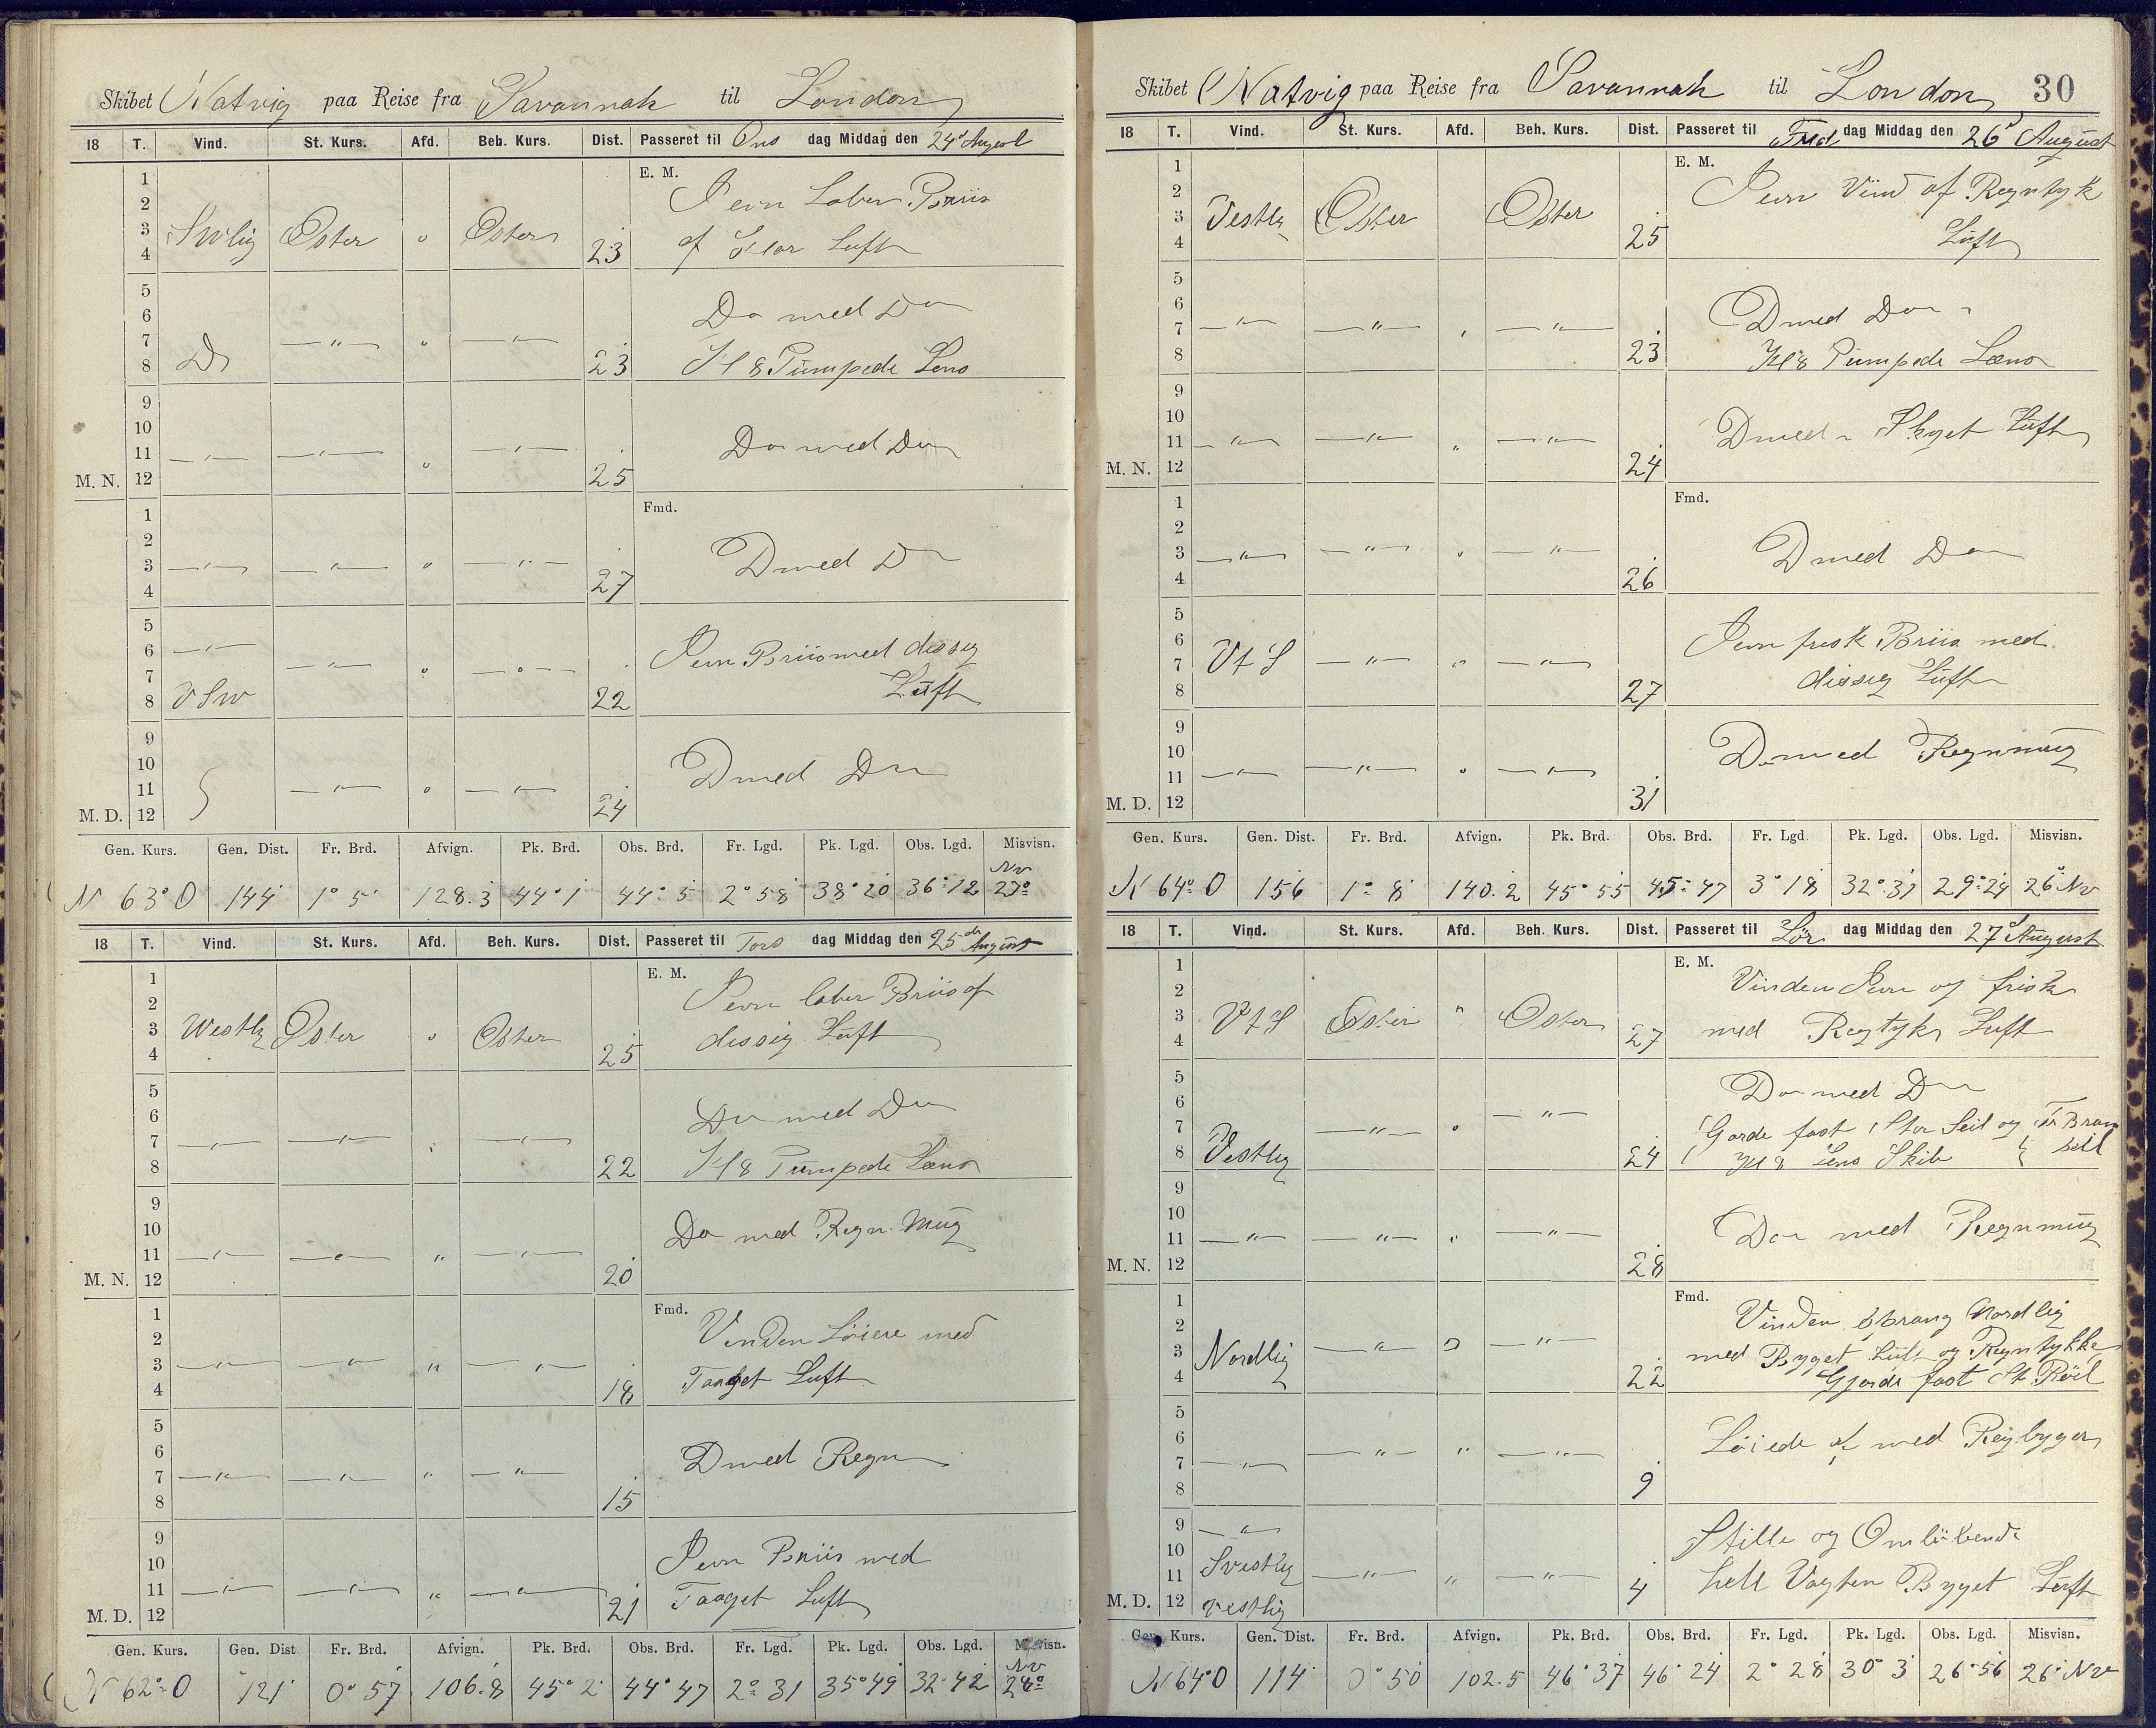 Skibet Natvig paa Reise fra Savannah til London
18 T. Vind. St. Kurs. Afd. Beh. Kurs. Dist. Passeret til Ons dag Middag den 24d August
E. M.
1
2
3
4
Svlig Oster " Oster 23
Jevn Laber Briis
of Klar Luft
5
6
7
8
D — " — " — " — 23
Do med Do
Kl 8 Pumpede Lens
9
10
11
M. N. 12
— " — — " — " — " — 25
Do med Do
Fmd.
1
2
3
4
— " — — " — " — " — 27
D med D
5
6
7
8
— " — — " — " — " — 22
VSW
Jevn Briis med dissig
Luft
9
10
11
M. D. 12
S — " — " — " — 24
D med Do
Gen. Kurs. Gen. Dist. Fr. Brd. Afvign. Pk. Brd. Obs. Brd. Fr. Lgd. Pk. Lgd. Obs. Lgd. Misvisn.
N 63° O 144 1° 5' 128.3 44° 1 44° 5 2° 58 38° 20 36° 12 Nv 27°
18 T. Vind. St. Kurs. Afd. Beh. Kurs. Dist. Passeret til Tors dag Middag den 25de August
E. M.
1
2
3
4
Westlg Oster " Oster 25
Jevn laber Briis of
dissig Luft
5
6
7
8
— " — — " — " — " — 22
Do med Do
Kl 8 Pumpede Læns
9
10
11
M. N. 12
— " — — " — " — " — 20
Do med Regn. Mug
Fmd.
1
2
3
4
— " — — " — " — " — 18
Vinden Löiere med
Taaget Luft
5
6
7
8
— " — — " — " — " — 15
D med Regn
9
10
11
M. D. 12
— " — — " — " — " — 21
Jevn Briis med
Taaget Luft
Gen. Kurs. Gen. Dist Fr. Brd. Afvign. Pk. Brd. Obs. Brd. Fr. Lgd. Pk. Lgd. Obs. Lgd. Misvisn.
N 62° O 121 0° 57 106.8 45° 2 44° 47 2° 31 35° 49 32° 42 Nv
Skibet Natvig paa Reise fra Savannah til London 30
18 T. Vind. St. Kurs. Afd. Beh. Kurs. Dist. Passeret til Fred dag Middag den 26d August
E. M.
1
2
3
4
Vestlg Oster Oster 25
Jevn Vind of Regntyk
Luft
5
6
7
8
— " — — " — " — " — 23
D med Do
Kl 8 Pumpede Læns
9
10
11
M. N. 12
— " — — " — " — " — 24
D med Skyet Luft
Fmd.
1
2
3
4
— " — — " — " — " — 26
D med Do
5
6
7
8
VtS — " — " — " — 27
Jevn frisk Briis med
dissig Luft
9
10
11
M. D. 12
— " — — " — " — " — 31
D med Regnmug
Gen. Kurs. Gen. Dist. Fr. Brd. Afvign. Pk. Brd. Obs. Brd. Fr. Lgd. Pk. Lgd. Obs. Lgd. Misvisn.
N 64° O 156 1° 8' 140.2 45° 55 45° 47 3° 18 32° 31 29° 24 26° Nv
18 T. Vind. St. Kurs. Afd. Beh. Kurs. Dist. Passeret til Lör dag Middag den 27d August
E. M.
1
2
3
4
VtS Oster " Oster 27
Vinden Jevn og frisk
med Regtyk Luft
5
6
7
8
Vestlig — " — " — " — 24
Do med Do
Gorde fast Stor Seil og Bram
Kl 8 Lens Skib seil
9
10
11
M. N. 12
— " — — " — " — " — 28
Do med Regnmug
Fmd.
1
2
3
4
Nordlig — " — " — " — 22
Vinden Sprang Nordlig
med Byget Luft og Regntykke
Gjorde fast St. Röil
5
6
7
8
— " — — " — " — " — 9
Löiede af med Regbyger
9
10
11
M. D. 12
— " —
Svestlig — " — " — " — 4
Vestlig
Stille og Omlöbende
hell Vagten Bygget Luft
Gen. Kurs. Gen. Dist. Fr. Brd. Afvign. Pk. Brd. Obs. Brd. Fr. Lgd. Pk. Lgd. Obs. Lgd. Misvisn.
N 64° O 114 0° 50 102.5 46° 37 46° 24 2° 28 30° 3 26° 56 26° Nv